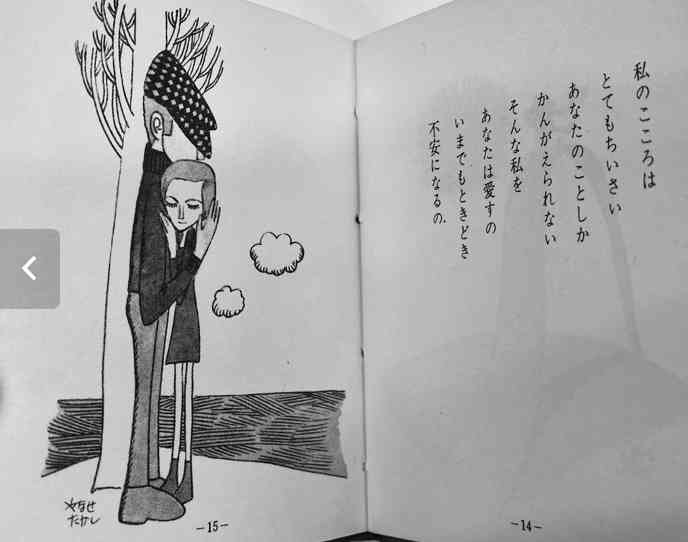 私のこころは
とてもちいさい
あなたのことしか
かんがえられない
そんな私を
あなたは愛すの
いまでもときどき
不安になるの。
—14—
やなせ
たかし
—15—